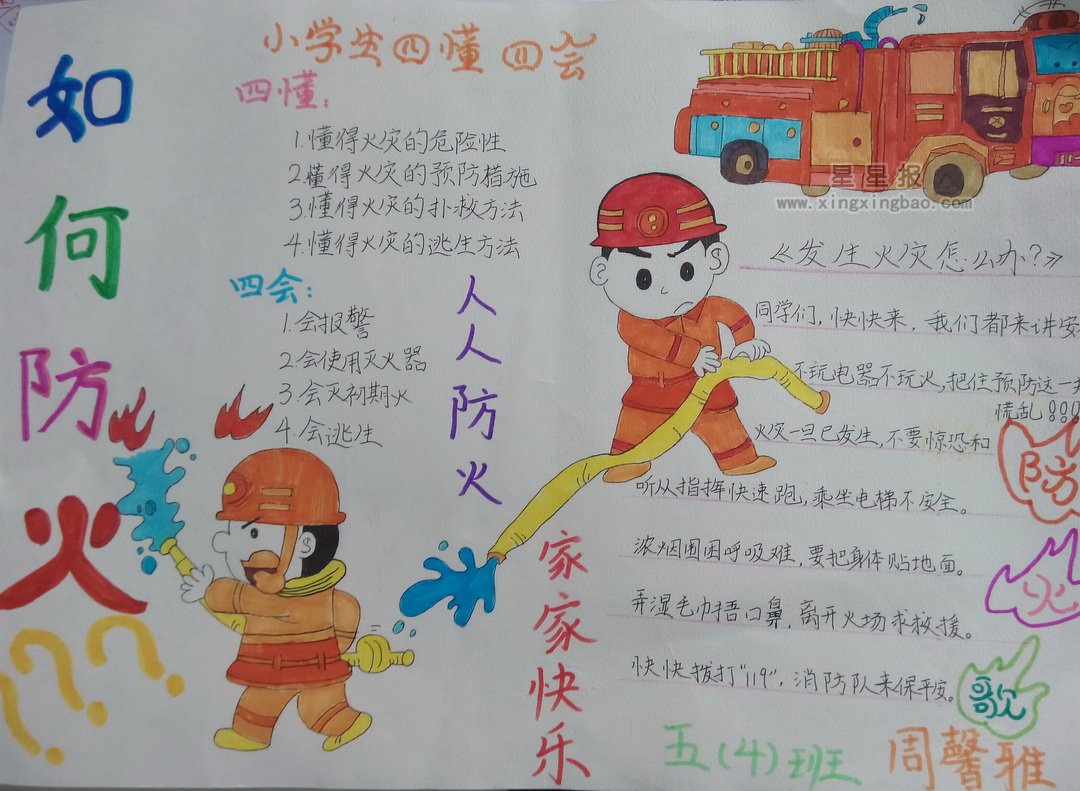 如何防火???
小学生四懂四会
四懂:
1.懂得火灾的危险性
2.懂得火灾的预防措施
3.懂得火灾的扑救方法
4.懂得火灾的逃生方法
四会:
1.会报警
2.会使用灭火器
3.会灭初期火
4.会逃生
人人防火
家家快乐
星星报
www.xingxingbao.com
《发生火灾怎么办?》
同学们,快快来,我们都来讲安
不玩电器不玩火,把住预防这一
火灾一旦已发生,不要惊恐和
慌乱!!!
听从指挥快速跑,乘坐电梯不安全。
浓烟围困呼吸难,要把身体贴地面。
弄湿毛巾捂口鼻,离开火场求救援。
快快拨打"119",消防队来保平安。
防
火
歌
五(4)班 周馨雅